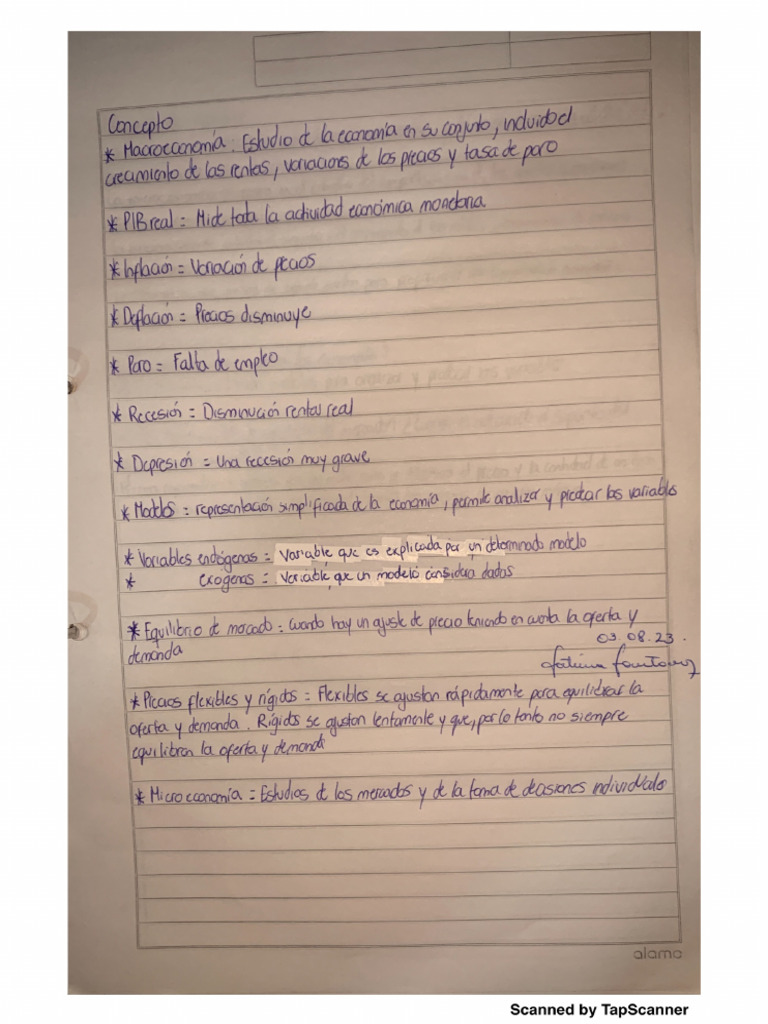 Concepto
* Macroeconomía: Estudio de la economía en su conjunto, incluido el
crecimiento de las rentas, variaciones de los precios y tasa de paro
* PIB real = Mide toda la actividad económica monetaria
* Inflación = Variación de precios
* Deflación = Precios disminuye
* Paro = Falta de empleo
* Recesión = Disminución rentas real
* Depresión = Una recesión muy grave
* Modelos = representación simplificada de la economía, permite analizar y predecir las variables
* Variables endógenas = Variable que es explicada por un determinado modelo
* exogenas = Variable que un modelo considera dados
* Equilibrio de mercado = Cuando hay un ajuste de precio teniendo en cuenta la oferta y
demanda
03.08.23.
* Precios flexibles y rígidos = Flexibles se ajustan rápidamente para equilibrar la
oferta y demanda. Rígidos se ajustan lentamente y que, por lo tanto no siempre
equilibran la oferta y demanda
* Microeconomía = Estudios de los mercados y de la toma de decisiones individuales
alamo
Scanned by TapScanner